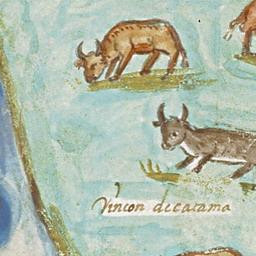 Vincon decatama